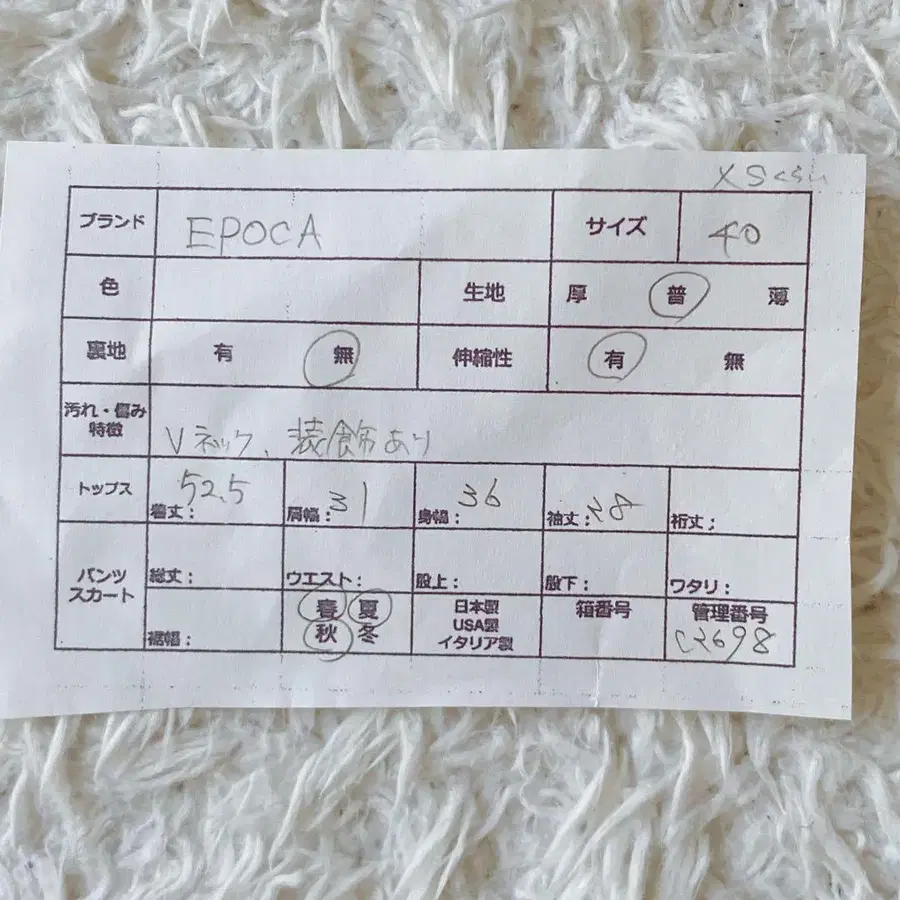 XSくらい
ブランド EPOCA サイズ 40
色 生地 厚 普 薄
裏地 有 無 伸縮性 有 無
汚れ・傷み
特徴 Vネック、装飾あり
トップス 着丈: 52.5 肩幅: 31 身幅: 36 袖丈: 28 裄丈:
パンツ
スカート 総丈: ウエスト: 股上: 股下: ワタリ:
裾幅: 春 夏
秋 冬
日本製
USA製
イタリア製
箱番号
管理番号
C2698